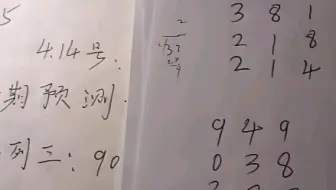 5
4.14号:
期预测.
列三: 90
2
3 8 1
2 1 8
2 1 4
9 4 9
0 3 8